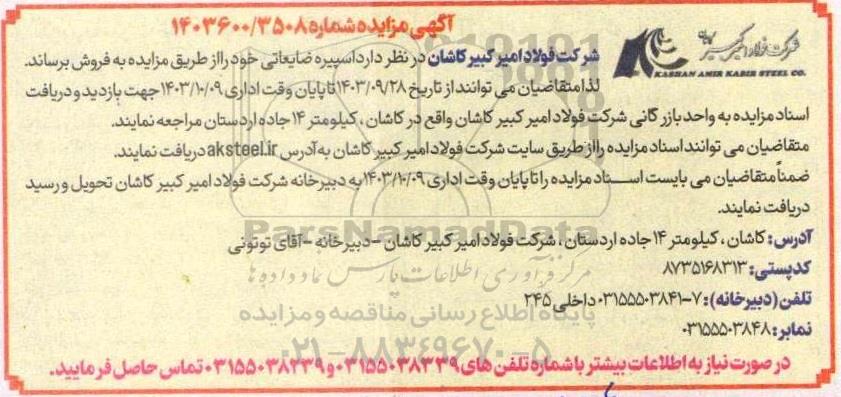 آگهی مزایده شماره ۱۴۰۳۶۰۰/۳۵۰۸
شرکت فولاد امیر کبیر کاشان
KASHAN AMIR KABIR STEEL CO.
شرکت فولاد امیر کبیر کاشان در نظر دارد اسپیره ضایعاتی خود را از طریق مزایده به فروش برساند.
لذا متقاضیان می توانند از تاریخ ۱۴۰۳/۰۹/۲۸ تا پایان وقت اداری ۱۴۰۳/۱۰/۰۹ جهت بازدید و دریافت
اسناد مزایده به واحد بازرگانی شرکت فولاد امیر کبیر کاشان واقع در کاشان ، کیلومتر ۱۴ جاده اردستان مراجعه نمایند.
متقاضیان می توانند اسناد مزایده را از طریق سایت شرکت فولاد امیر کبیر کاشان به آدرس aksteel.ir دریافت نمایند.
ضمناً متقاضیان می بایست اسناد مزایده را تا پایان وقت اداری ۱۴۰۳/۱۰/۰۹ به دبیرخانه شرکت فولاد امیر کبیر کاشان تحویل و رسید
دریافت نمایند.
آدرس: کاشان ، کیلومتر ۱۴ جاده اردستان ، شرکت فولاد امیر کبیر کاشان – دبیرخانه – آقای توتونی
کدپستی: ۸۷۳۵۱۶۸۳۱۳
تلفن (دبیرخانه): ۷-۰۳۱۵۵۵۰۳۸۴۱ داخلی ۲۴۵
نمابر: ۰۳۱۵۵۵۰۳۸۴۸
در صورت نیاز به اطلاعات بیشتر با شماره تلفن های ۰۳۱۵۵۰۳۸۳۳۹ و ۰۳۱۵۵۰۳۸۲۳۹ تماس حاصل فرمایید.
ParsNamadData
مرکز فرآوری اطلاعات پارس نماد داده ها
پایگاه اطلاع رسانی مناقصه و مزایده
۰۲۱-۸۸۳۴۹۶۷۰-۵